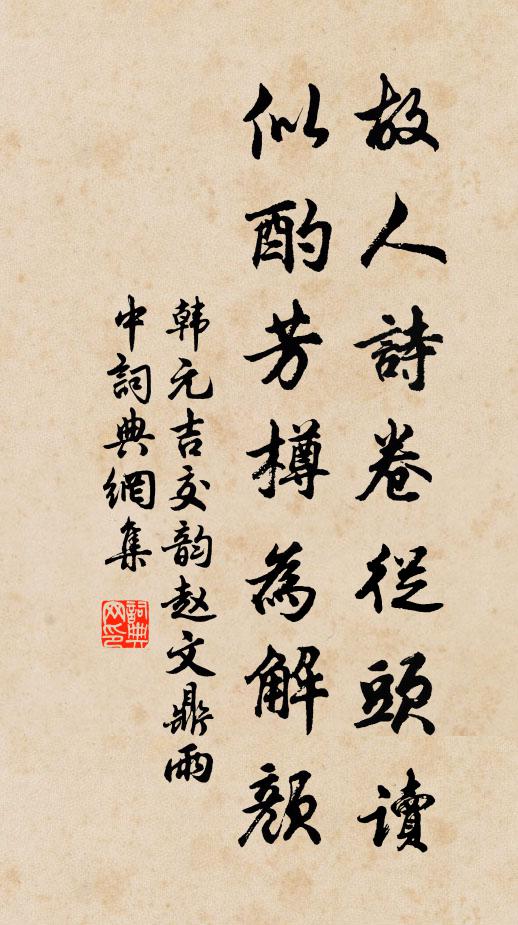 故人詩卷從頭讀
似酌芳樽為解顏
韩元吉交韵赵文鼎雨
中詞典網集
詞典网印